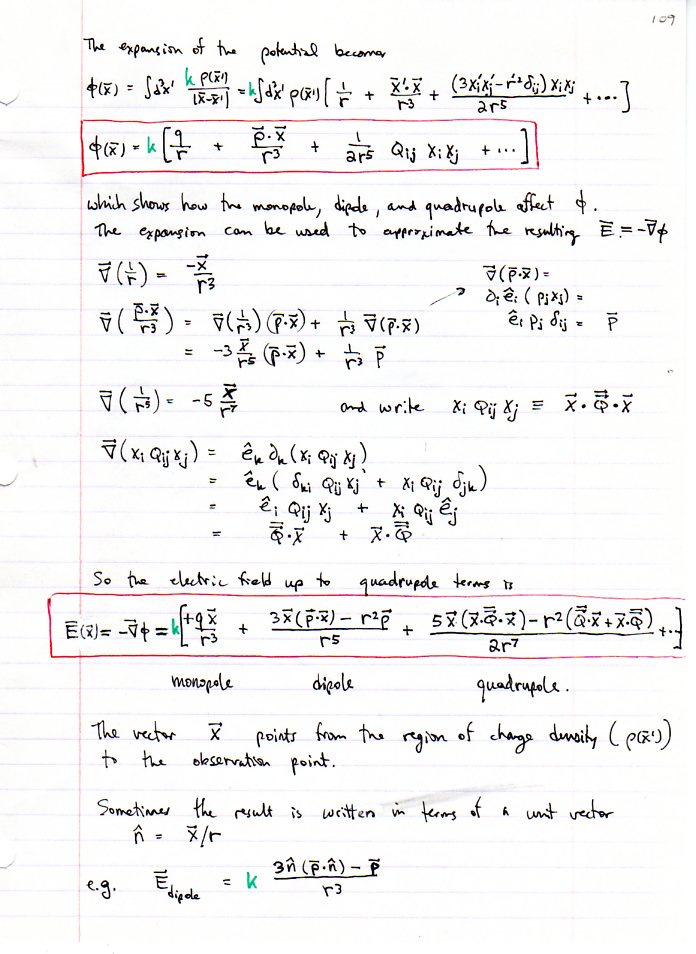 109
The expansion of the potential becomes
ϕ(x⃗) = ∫d³x' k ρ(x⃗')/|x⃗-x⃗'| = k∫d³x' ρ(x⃗') [ 1/r + x⃗'·x⃗/r³ + (3xi'xj' - r'²δij) xixj/2r⁵ + ... ]
ϕ(x⃗) = k [ q/r + p⃗·x⃗/r³ + 1/2r⁵ Qij xi xj + ... ]
which shows how the monopole, dipole, and quadrupole affect ϕ.
The expansion can be used to approximate the resulting E⃗ = -∇⃗ϕ
∇⃗(1/r) = -x⃗/r³
∇⃗(p⃗·x⃗/r³) = ∇⃗(1/r³)(p⃗·x⃗) + 1/r³ ∇⃗(p⃗·x⃗)
= -3 x⃗/r⁵ (p⃗·x⃗) + 1/r³ p⃗
∇⃗(p⃗·x⃗) =
∂i êi (pjxj) =
êi pj δij = p⃗
∇⃗(1/r⁵) = -5 x⃗/r⁷ and write xi Qij xj ≡ x⃗·Q⃗⃗·x⃗
∇⃗(xi Qij xj) = êk ∂k (xi Qij xj)
= êk ( δki Qij xj + xi Qij δjk )
= êi Qij xj + xi Qij êj
= Q⃗⃗·x⃗ + x⃗·Q⃗⃗
So the electric field up to quadrupole terms is
E⃗(x⃗) = -∇⃗ϕ = k [ +q x⃗/r³ + 3x⃗(p⃗·x⃗) - r²p⃗/r⁵ + 5x⃗(x⃗·Q⃗⃗·x⃗) - r²(Q⃗⃗·x⃗ + x⃗·Q⃗⃗)/2r⁷ + ... ]
monopole dipole quadrupole.
The vector x⃗ points from the region of charge density (ρ(x⃗'))
to the observation point.
Sometimes the result is written in terms of a unit vector
n̂ = x⃗/r
e.g. E⃗dipole = k 3n̂(p⃗·n̂) - p⃗/r³